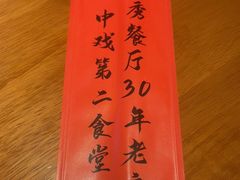 秀餐厅30年老
中戏第二食堂